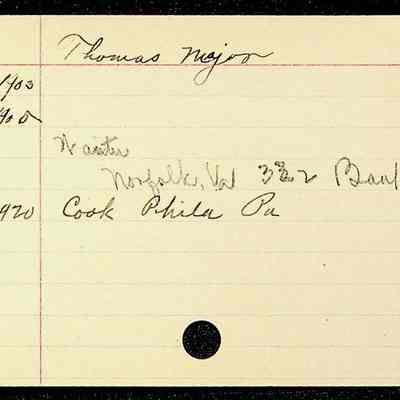 Thomas Major
1903
Waiter
Norfolk, Va 322 Bank
920 Cook Phila Pa